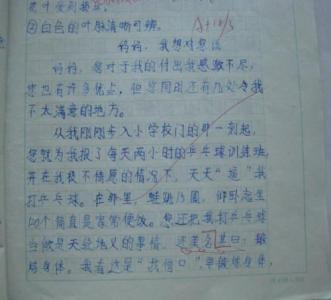 菜叶受到损伤。
②白色的叶脉清晰可辨。
A+10/3
妈妈，我想对您说
妈妈，您对于我的付出我感激不尽，
您也有许多优点，但您同时还有几处令我
不太满意的地方。
从我刚刚步入小学校门的那一刻起，
您就为我报了每天两小时的乒乓球训练班，
并在我极不情愿的情况下，天天“逼”我
打乒乓球。在那里，蛙跳10圈，仰卧起坐
50个简直是家常便饭。您还把我打乒乓球
当做是天经地义的事情，还美名其曰：锻
炼身体，我看这是“找借口”，单锻炼身体，